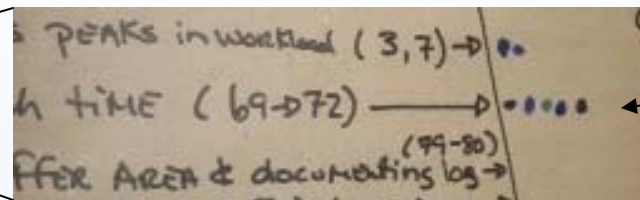 s PEAKS in workload (3,7)→
h TIME (69→72) →
(79-80)
ffER AREA & documenting log →